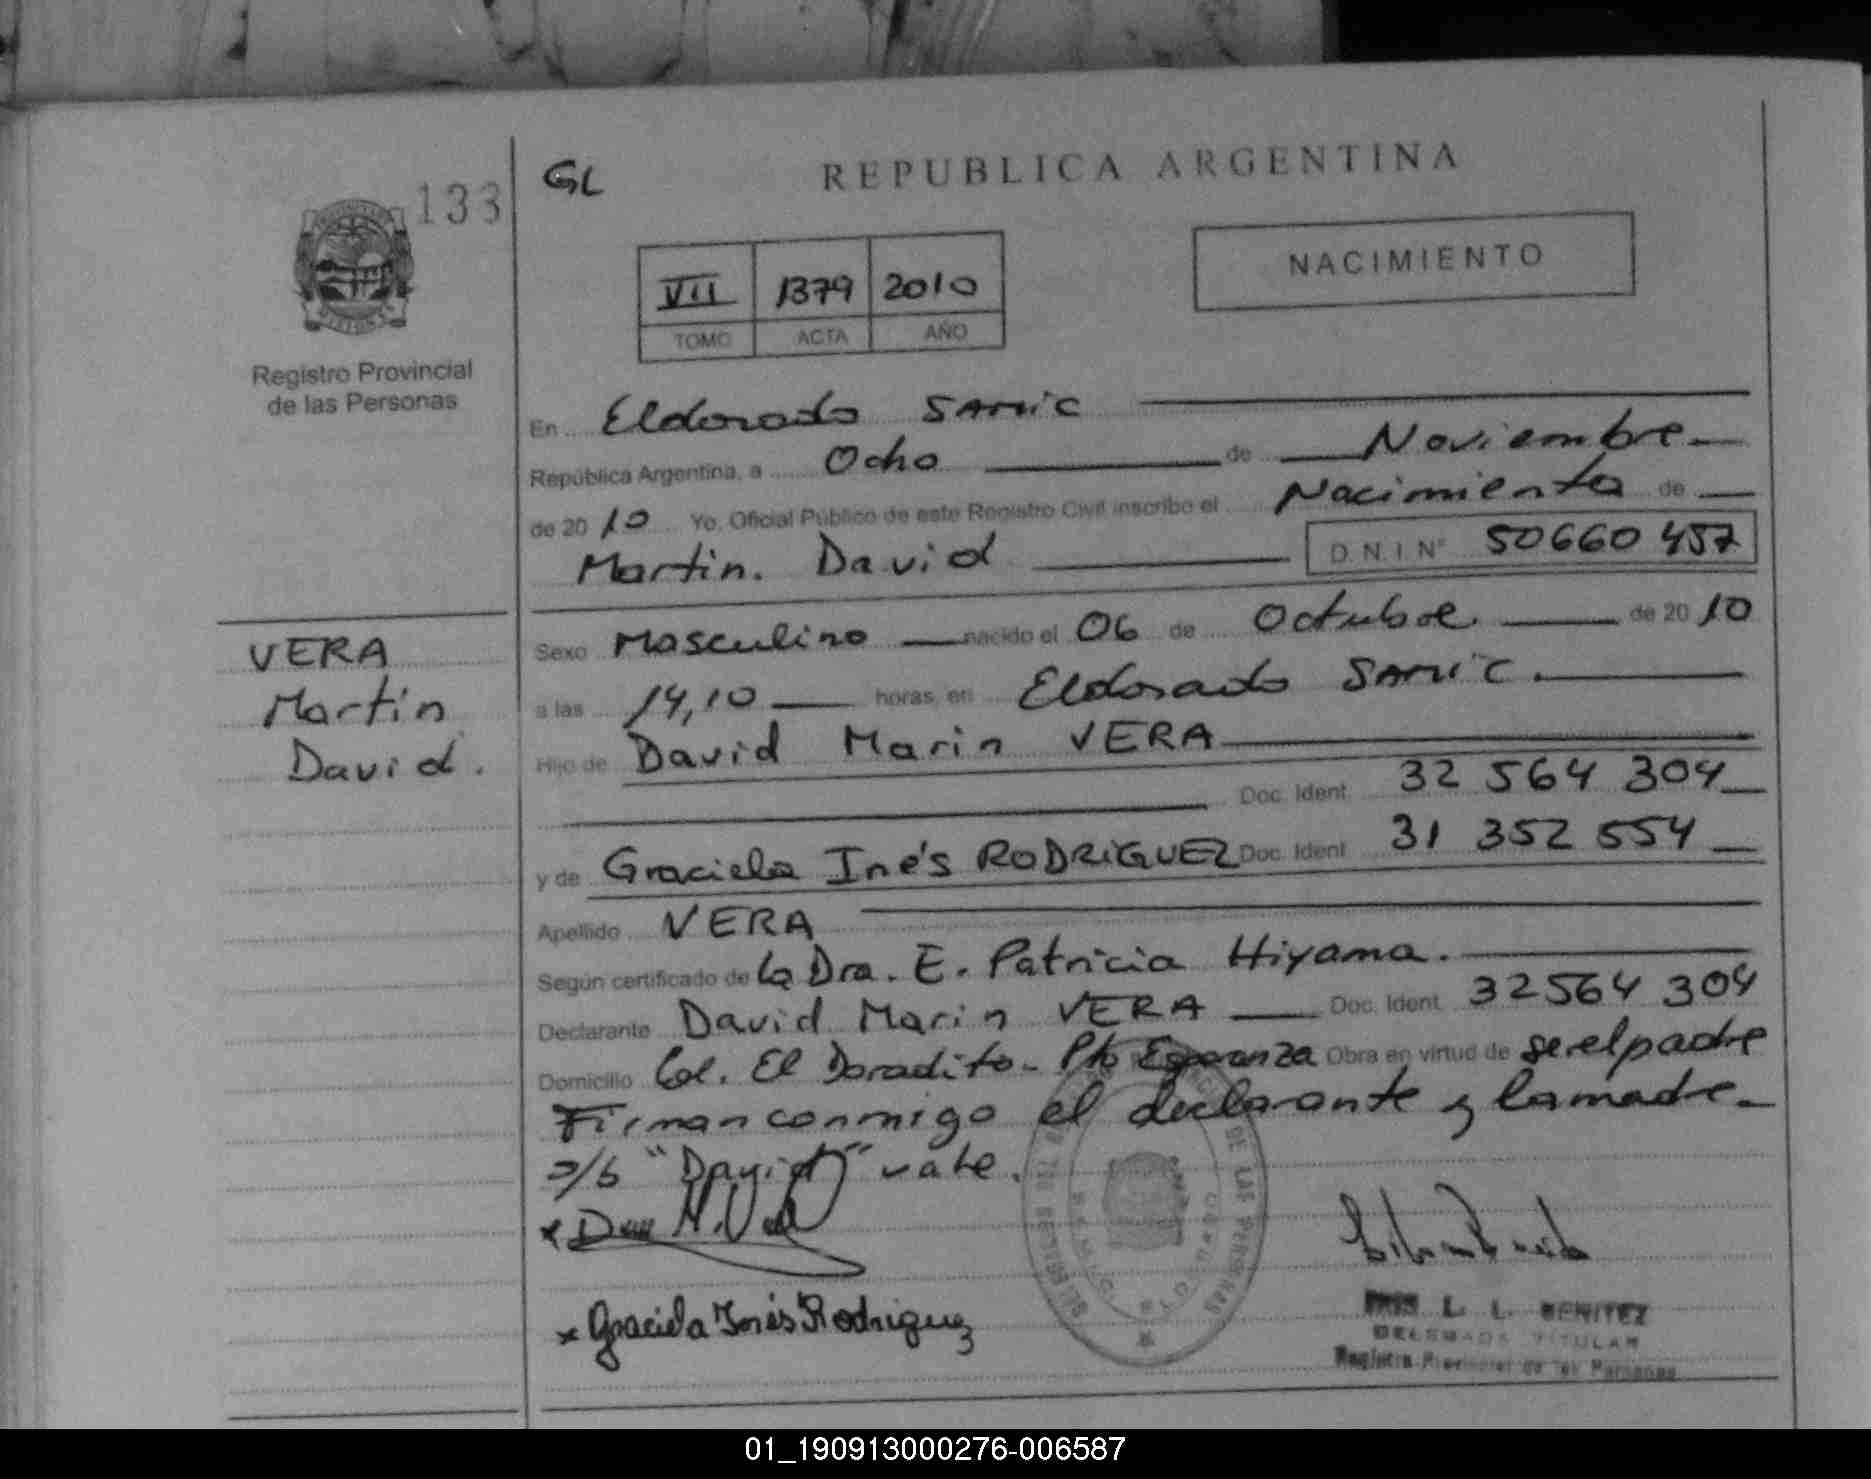 133
GL
REPUBLICA ARGENTINA
NACIMIENTO
VII 1379 2010
TOMO ACTA AÑO
Registro Provincial
de las Personas
En Eldorado SAMIC
República Argentina, a Ocho de Noviembre
de 20 10 Yo, Oficial Público de este Registro Civil inscribo el Nacimiento de
Martin. David D.N.I. Nº 50660 457
VERA
Martin
David.
Sexo Masculino nacido el 06 de Octubre. de 20 10
a las 14,10 horas, en Eldorado SAMIC.
Hijo de David Marin VERA
Doc. Ident. 32 564 304
y de Graciela Inés RODRIGUEZ Doc. Ident. 31 352 554
Apellido VERA
Según certificado de la Dra. E. Patricia Hiyama.
Declarante David Marin VERA Doc. Ident. 32564 304
Domicilio Col. El Doradito - Pto Esperanza Obra en virtud de ser el padre
Firman conmigo el declarante y la madre
"David" vale.
Graciela Inés Rodriguez
DE LAS PERSONAS
L. L. BENITEZ
DELEGADA TITULAR
Registro Provincial de las Personas
01_190913000276-006587